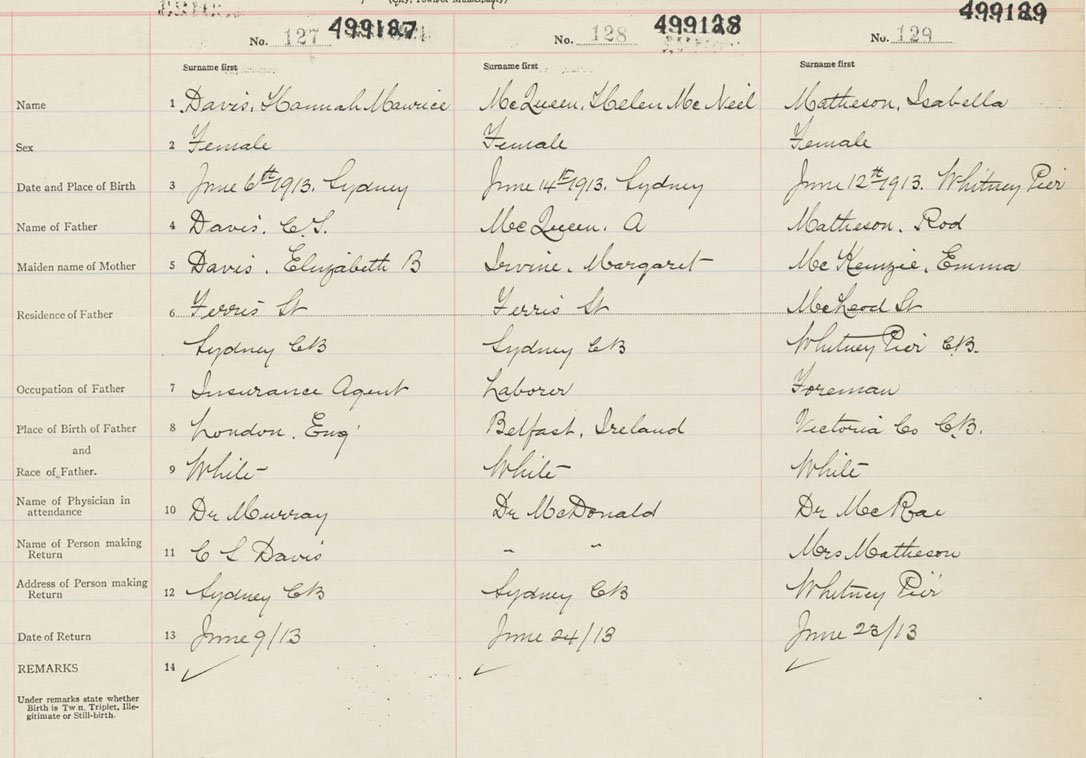 (City, Town or Municipality)
No. 127 499127 No. 128 499128 No. 129 499129
Surname first Surname first Surname first
Name 1 Davis, Hannah Maurice McQueen, Helen McNeil Matheson, Isabella
Sex 2 Female Female Female
Date and Place of Birth 3 June 6th 1913. Sydney June 14th 1913. Sydney June 12th 1913. Whitney Pier
Name of Father 4 Davis. C.S. McQueen. A Matheson. Rod
Maiden name of Mother 5 Davis. Elizabeth B Irvine. Margaret McKenzie. Emma
Residence of Father 6 Ferris St Ferris St McLeod St
Sydney CB Sydney CB Whitney Pier C.B.
Occupation of Father 7 Insurance Agent Laborer Foreman
Place of Birth of Father 8 London. Eng Belfast, Ireland Victoria Co C.B.
and
Race of Father. 9 White White White
Name of Physician in attendance 10 Dr Murray Dr McDonald Dr McRae
Name of Person making Return 11 C S Davis " " Mrs Matheson
Address of Person making Return 12 Sydney CB Sydney CB Whitney Pier
Date of Return 13 June 9/13 June 24/13 June 23/13
REMARKS 14 ✓ ✓ ✓
Under remarks state whether
Birth is Twin, Triplet, Ille-
gitimate or Still-birth.